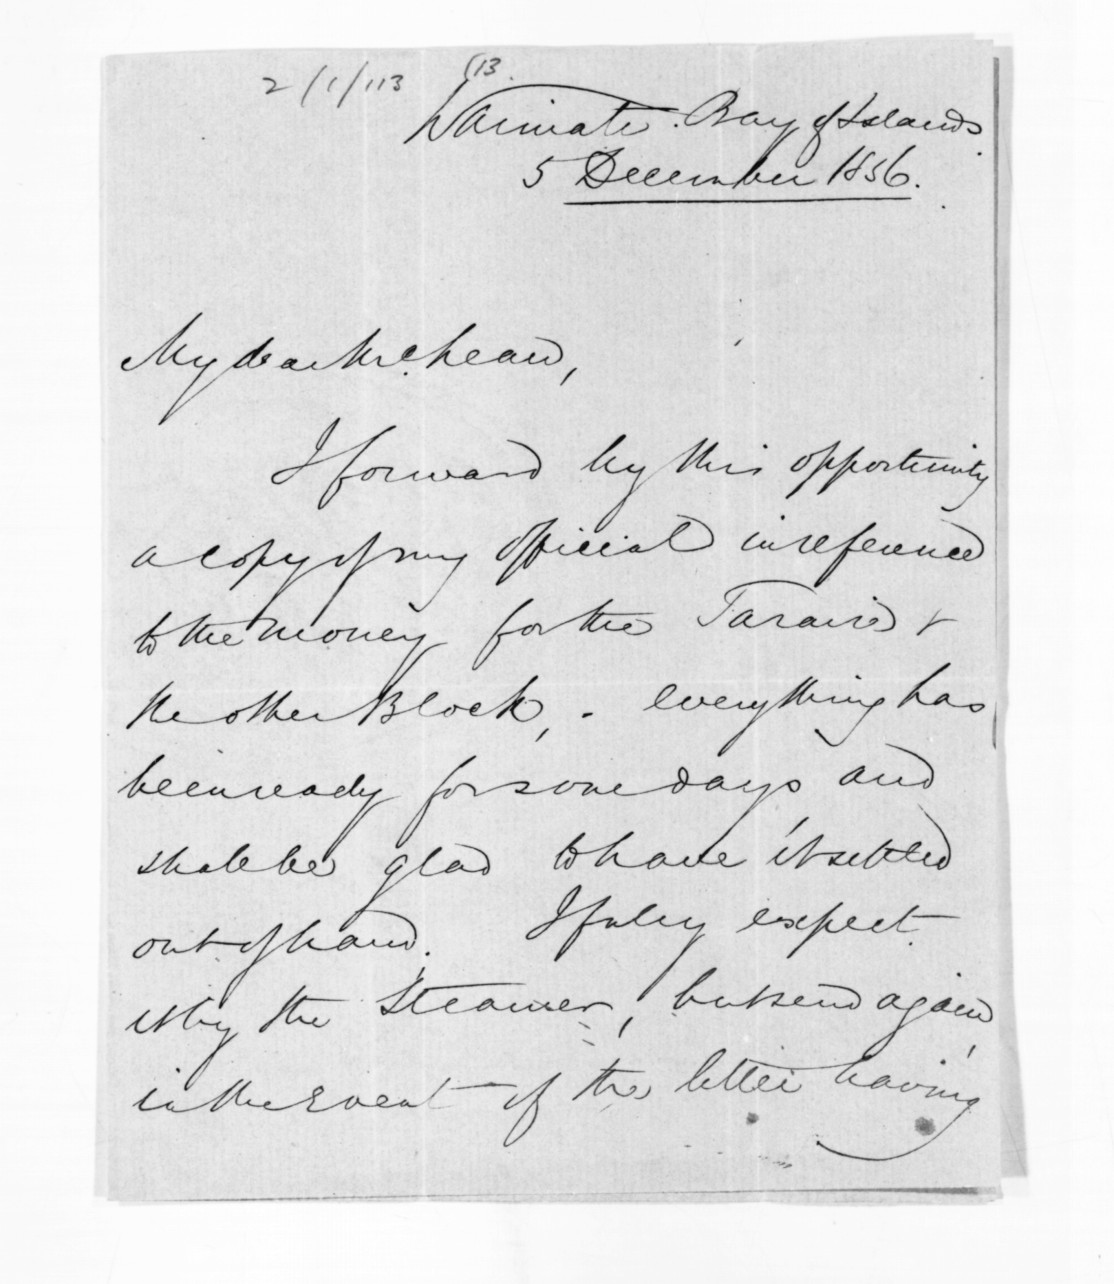 2/1/113 (13.
Waimate. Bay of Islands
5 December 1856.
My dear McLean,
I forward by this opportunity
a copy of my official in reference
to the money for the Taraire &
the other Block, - everything has
been ready for some days and
shall be glad to have it settled
out of hand. I fully expect
it by the Steamer, but send again,
in the event of the letter having